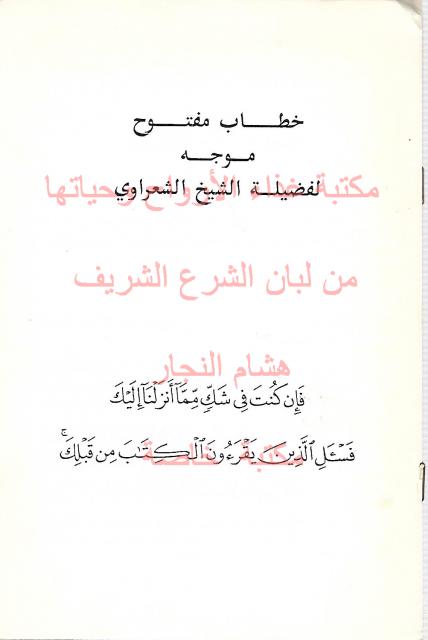 خطاب مفتوح
موجه
لفضيلة الشيخ الشعراوي
مكتبة غذاء الأرواح وحياتها
من لبان الشرع الشريف
هشام النجار
فَإِن كُنتَ فِى شَكٍّ مِّمَّآ أَنزَلْنَآ إِلَيْكَ
فَسْـَٔلِ ٱلَّذِينَ يَقْرَءُونَ ٱلْكِتَـٰبَ مِن قَبْلِكَ ۚ
مكتبة خاصة